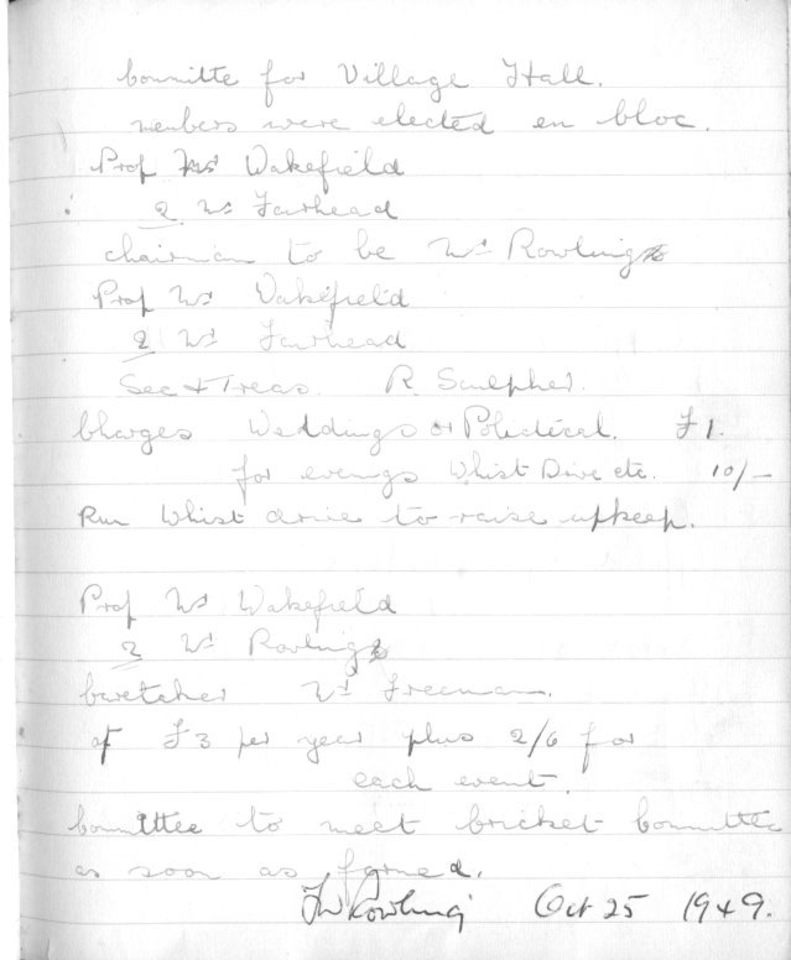 Committe for Village Hall.
members were elected en bloc.
Prop Mr Wakefield
2 Mr Fairhead
chairman to be Mr Rowling
Prop Mr Wakefield
2 Mr Fairhead
Sec & Treas. R. Sculpher.
Charges Weddings or Poledical. £1.
for evenigs Whist Drive etc. 10/-
Run Whist drive to raise upkeep.
Prop Mr Wakefield
2 Mr Rowling
Caretaker Mr Freeman.
of £3 per year plus 2/6 for
each event.
Committee to meet Cricket Committee
as soon as formed.
Rowling Oct 25 1949.